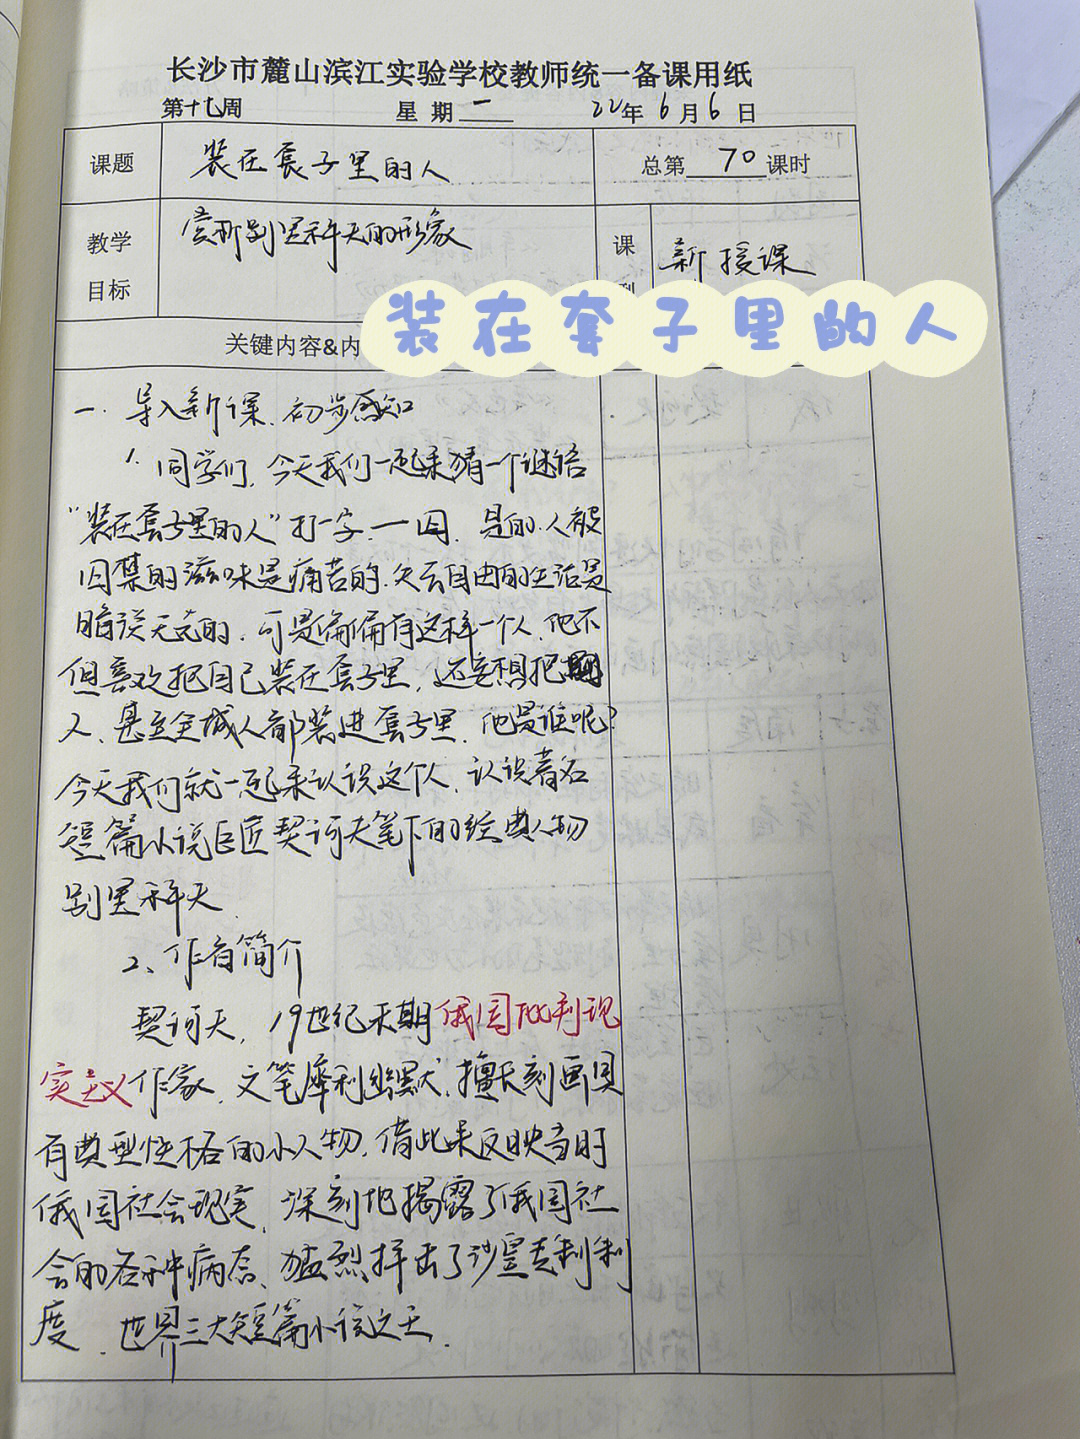 长沙市麓山滨江实验学校教师统一备课用纸
第十七周 星期一 22年6月6日
课题 装在套子里的人 总第70课时
教学目标 赏析别里科夫的形象 课 新授课
装在套子里的人
关键内容&内
一.导入新课、初步感知
1.同学们,今天我们一起来猜一个谜语
“装在套子里的人”打一字——囚.是的.人被
囚禁的滋味是痛苦的.失去自由的生活是
暗淡无光的.可是偏偏有这样一个人.他不
但喜欢把自己装在套子里,还妄想把
人、甚至全城人都装进套子里.他是谁呢?
今天我们就一起来认识这个人、认识著名
短篇小说巨匠契诃夫笔下的经典人物
别里科夫
2、作者简介
契诃夫,19世纪末期俄国批判现
实主义作家.文笔犀利幽默.擅长刻画具
有典型性格的小人物.借此来反映当时
俄国社会现实,深刻地揭露了俄国社
会的各种病态、猛烈抨击了沙皇专制制
度.世界三大短篇小说之王.